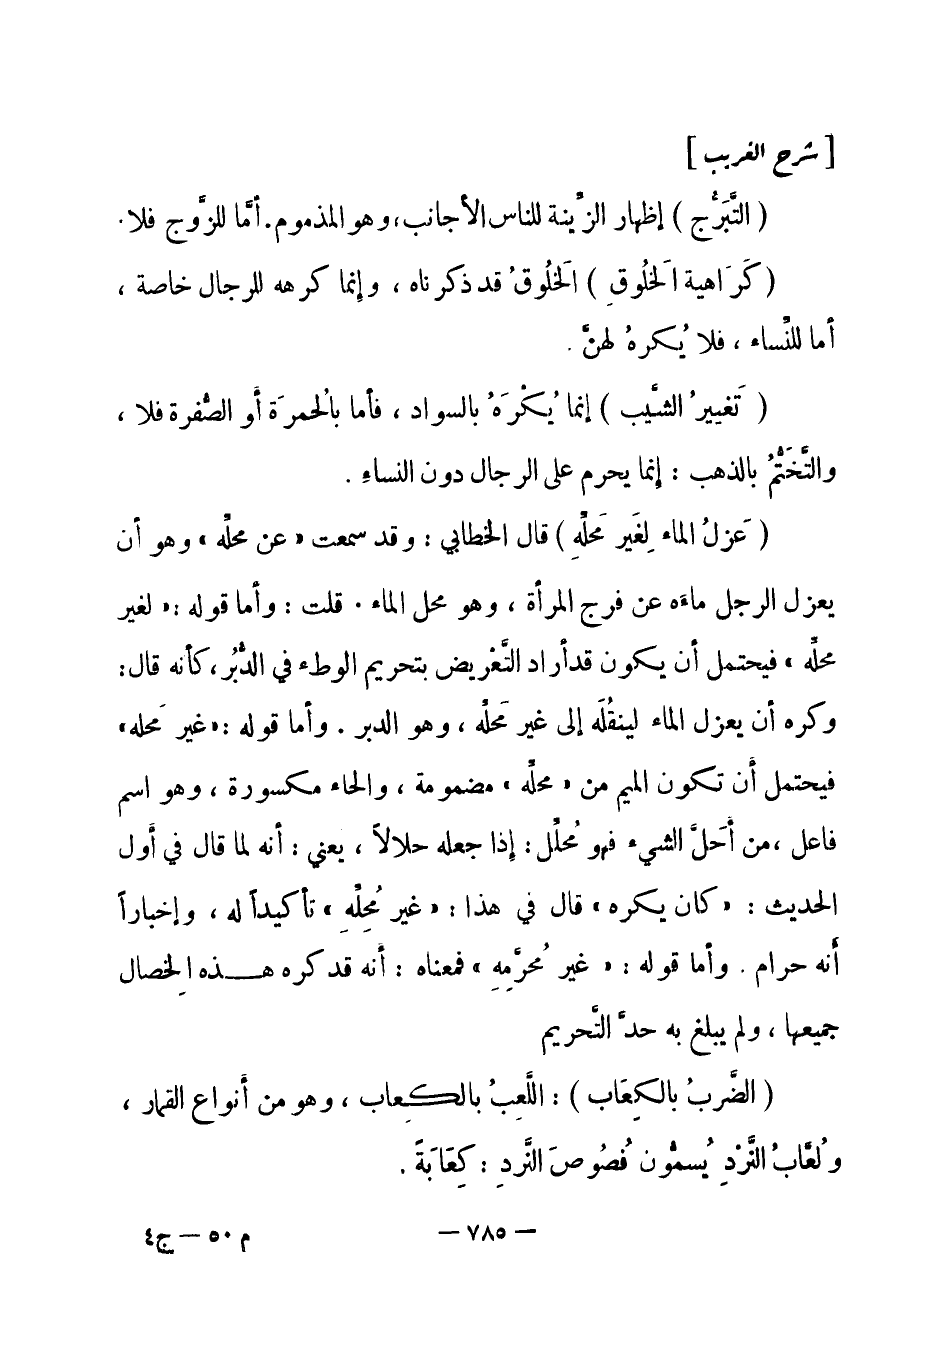 [ شرح الغريب ]
( التَّبَرُّج ) إظهار الزِّينة للناس الأجانب ، وهو المذموم . أمَّا للزَّوج فلا .
( كَرَاهية الَخلُوقِ ) الَخلُوقُ قد ذكرناه ، وإنما كرهه للرجال خاصة ،
أما للنِّساء ، فلا يُكرهُ لهنَّ .
( تَغييرُ الشَّيب ) إنما يُكْرَهُ بالسواد ، فأما بالُحمرَة أو الصُّفرة فلا ،
والتَّخَتُّمُ بالذهب : إنما يحرم على الرجال دون النساءِ .
( عَزلُ الماء لِغَير مَحلِّهِ ) قال الخطابي : وقد سمعت « عن محلِّه » وهو أن
يعزل الرجل ماءَه عن فرج المرأة ، وهو محل الماء . قلت : وأما قوله : « لغير
محلِّه » فيحتمل أن يكون قد أراد التَّعْريض بتحريم الوطء في الدُّبُر ، كأنه قال :
وكره أن يعزل الماء لينقُلَه إلى غير مَحلِّه ، وهو الدبر . وأما قوله : « غير مَحله »
فيحتمل أن تكون الميم من « محلِّه » مضمومة ، والحاء مكسورة ، وهو اسم
فاعل ، من أَحَلَّ الشيء فهو مُحلِّل : إذا جعله حلالاً ، يعني : أنه لما قال في أول
الحديث : « كان يكره » قال في هذا : « غير مُحِلِّهِ » تأكيداً له ، وإخباراً
أنه حرام . وأما قوله : « غير مُحرَّمِهِ » فمعناه : أنه قد كره هـذه الِخصال
جميعها ، ولم يبلغ به حدَّ التَّحريم
( الضَّربُ بالكِعَاب ) : اللَّعِبُ بالكِعاب ، وهو من أنواع القمار ،
ولُعَّابُ النَّرْدِ يُسمُّون فُصُوصَ النَّردِ : كِعَابَةً .
— ٧٨٥ —
م ٥٠ — ج٤